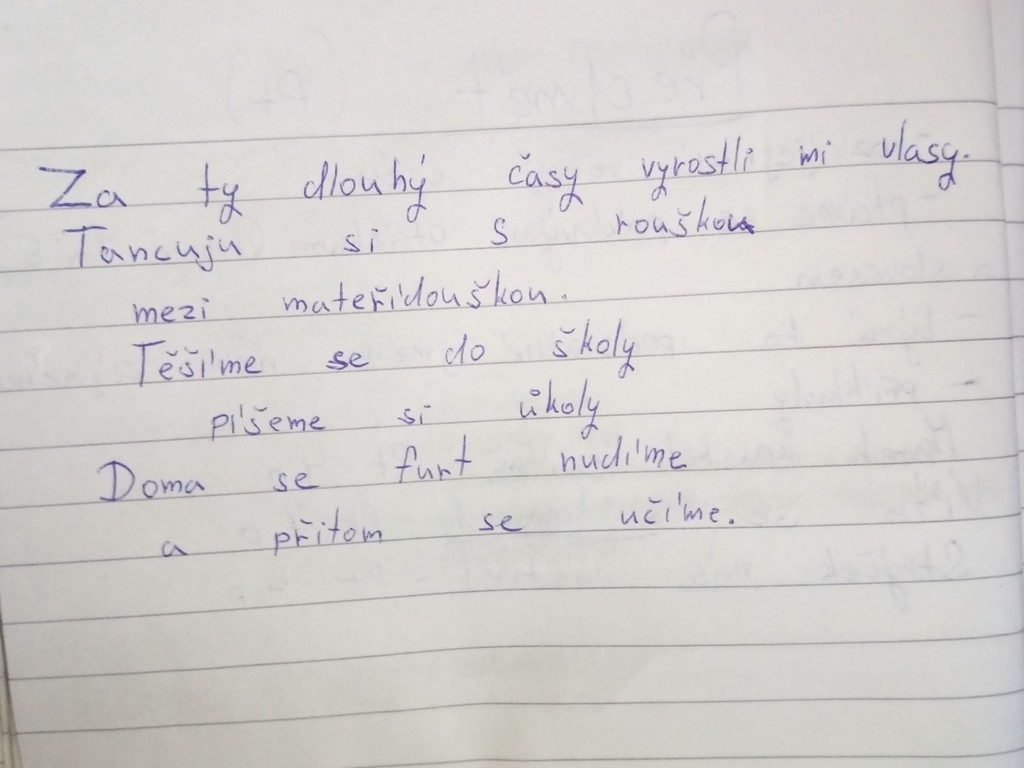 Za ty dlouhý časy vyrostli mi vlasy.
Tancuju si s rouškou
mezi mateřídouškou.
Těšíme se do školy
píšeme si ůkoly
Doma se furt nudíme
a přitom se učíme.